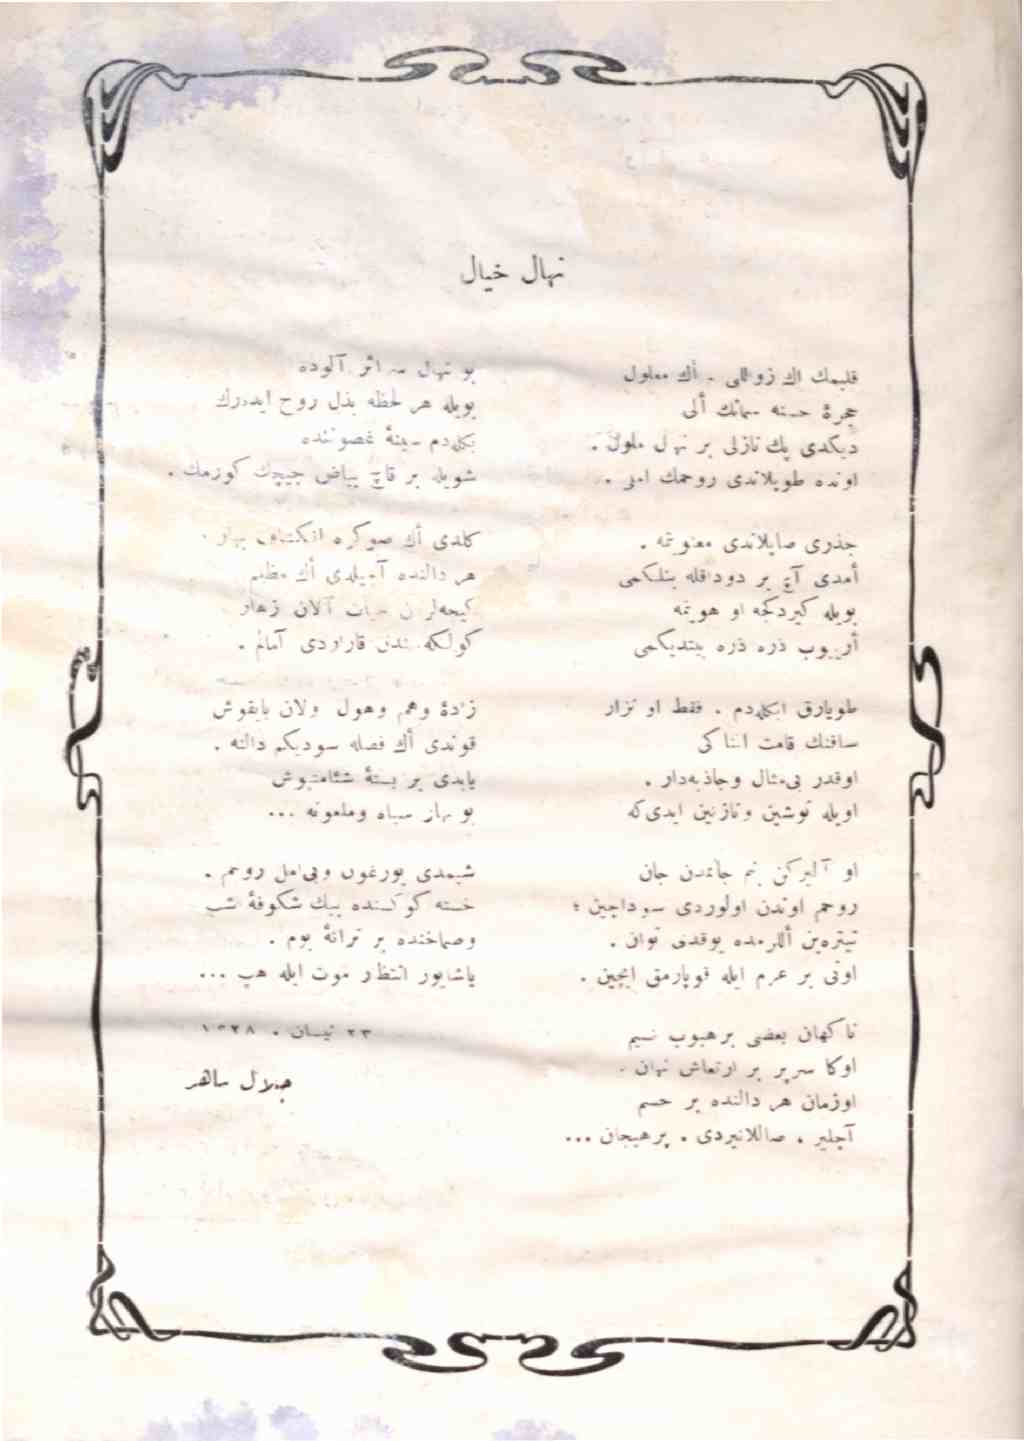 نهال خیال
قلبمك اك زوالی ، أك معلول
حجرهٔ خسته سانك ألی
دیكدی پك نازلی بر نهال ملول .
اونده طوپلاندی روحمك املی .
جذری صاپلاندی معنویتمه .
أمدی آچ بر دوداقله بنلكمی
بویله كیردكجه او هویتمه
أرییوب ذره ذره بیتدیكمی
طویارق ایكله‌دم . فقط او نزار
ساقنك قامت اثناكی
اوقدر بی‌مثال وجاذبه‌دار .
اویله نوشین ونازنین ایدی‌كه
او آلیركن بنم جانمدن جان
روحم اوندن اولوردی سوداچین ؛
تیتره‌ین أللرمده یوقدی توان .
اونی بر عزم ایله قوپارمق ایچین .
ناكهان بعضی برهبوب نسیم
اوكا سرپر بر ارتعاش نهان .
اوزمان هر دالنده بر حسم
آچلیر . صاللانیردی . پرهیجان ...
بو نهال آلوده
بویله هر لحظه بذل روح ایده‌رك
بكله‌دم سینهٔ غصوننده
شویله بر قاچ بیاض چیچك كورمك .
كلدی أك صوكره انكشاف بهار .
هر دالنده آچیلدی أك مظلم
كیجه‌لردن حیات آلان ازهار
كولكه‌سندن قاراردی آمالم .
زادهٔ وهم وهول اولان بایقوش
قوندی أك فضله سودیكم دالنه .
یاپدی بر بستهٔ شئامتپوش
بو بهار سیاه وملعونه ...
شیمدی یورغون وبی‌امل روحم .
خسته كوكسنده بیك شكوفهٔ شب
وصماخنده بر ترانهٔ بوم .
یاشایور انتظار موت ایله هپ ...
٢٣ نیسان . ١٣٢٨
جلال ساهر